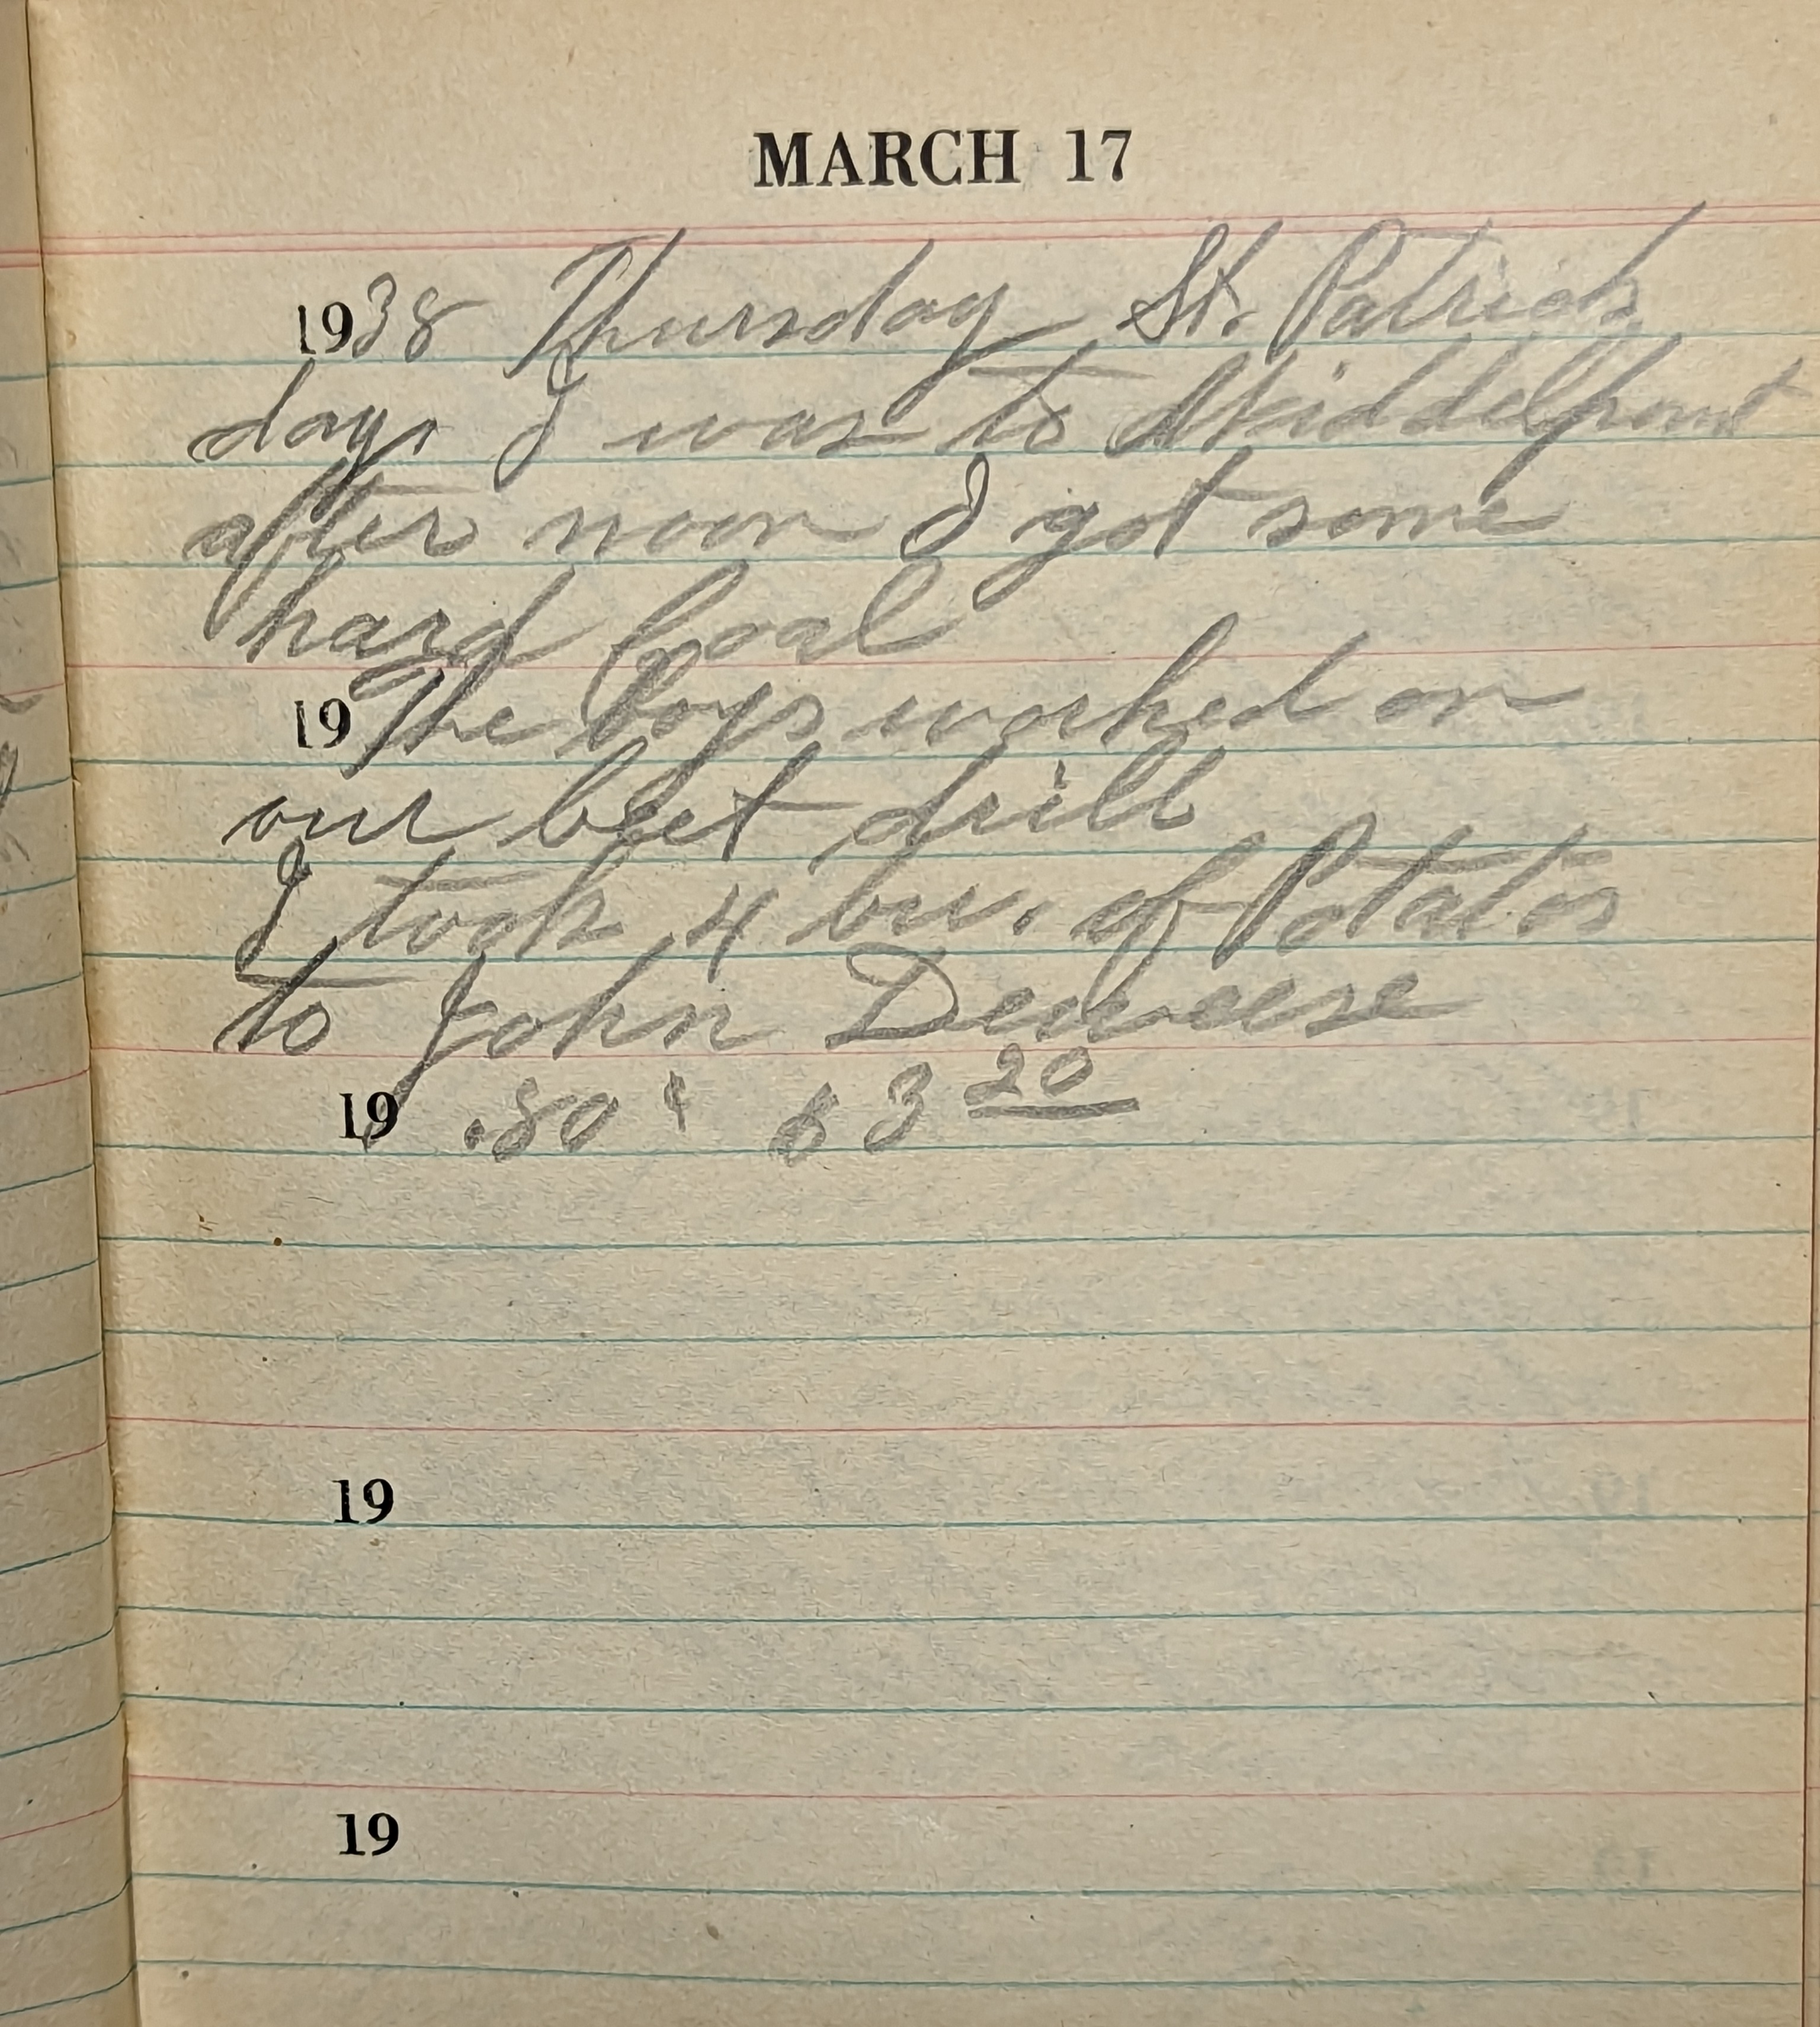 MARCH 17
1938 Thursday St. Patrick
day. I was to Middelpoint
after noon I got some
hard Coal
19 The Boys worked on
our beet drill
I took 4 bu. of Potatos
to John Deweese
19 .80 ¢ $ 3 20
19
19